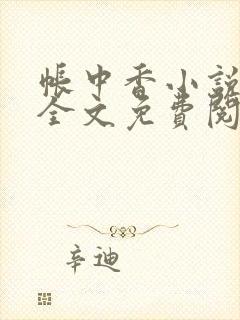 帳中香小說
全文免費閱
辛迪